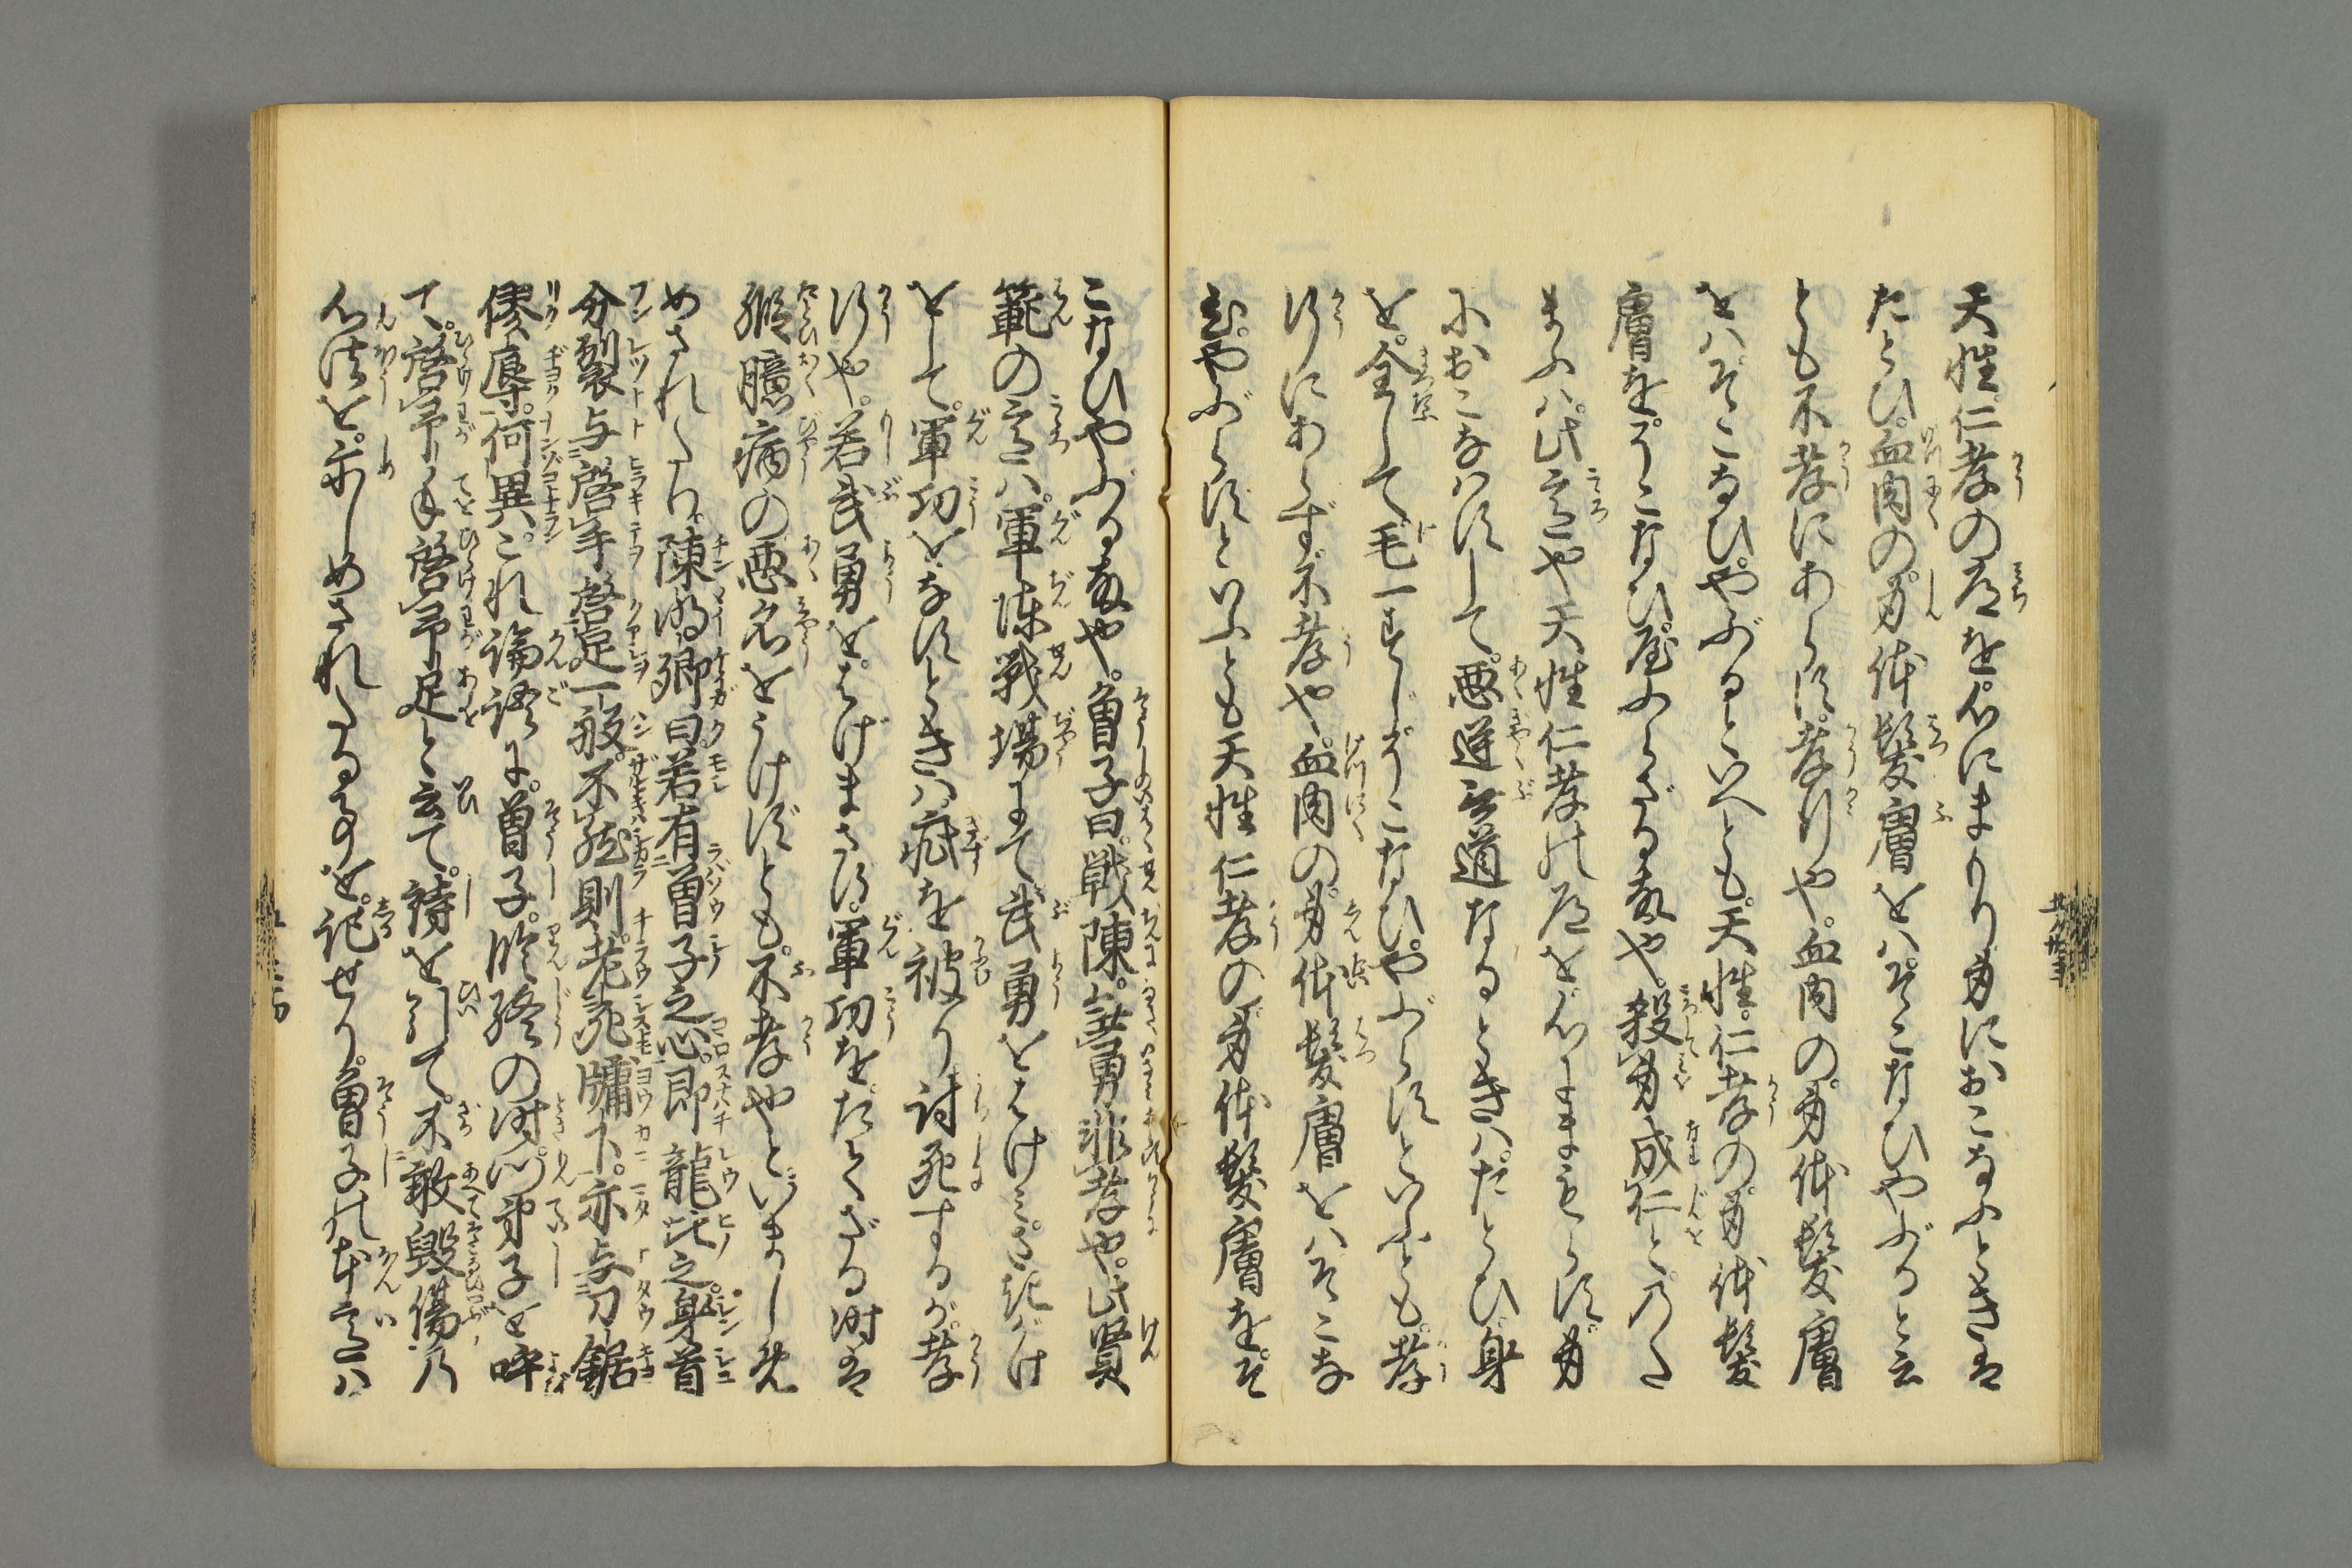 天性仁孝の道を心にまもり身におこなふときは
たとひ血肉の身体髪膚をバそこなひやぶると云
とも不孝にあらず孝行や血肉の身体髪膚
をバそこなひやぶるといへとも天性仁孝の身体髪
膚をそこなひやぶらざる故や殺身成仁とのた
まふハ此意や天性仁孝の道を心にまもらず身
におこなはずして悪逆無道なるときハたとひ身
を全して毛一すじそこなひやぶらずといふとも孝
行にあらず不孝や血肉の身体髪膚をバそこな
ひやぶらずといふとも天性仁孝の身体髪膚をそ
こなひやぶる故や曽子曰戦陳無勇非孝や此賢
範の意ハ軍陳戦場にて武勇をはげミさきがけ
をして軍功をなすときハ疵を被り討死するが孝
行や若武勇をはげまさず軍功をたてざる時は
縦臆病の悪名をうけずとも不孝やといましめ
めされたり陳明卿曰若有曽子之心即龍比之身首
分裂与啓手啓足一般不然則老死牖下亦与刀鋸
僇辱何異これ論語に曽子臨終の時門弟子を呼
て啓予手啓予足と云て詩を引て不敢毀傷乃
心法を示しめされたる事を記せり曽子の本意ハ